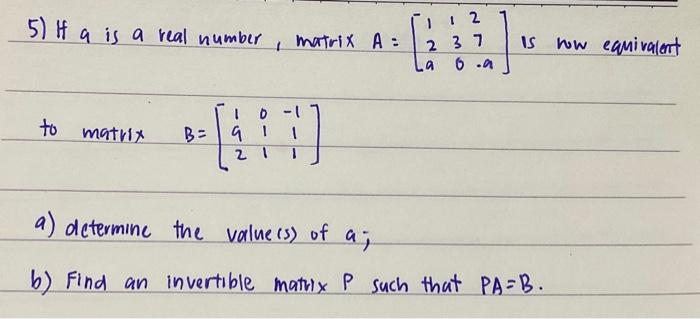 5) If a is a real number, matrix A = [ 1 1 2
2 3 7
a 0 -a ] is row equivalent
to matrix B = [ 1 0 -1
a 1 1
2 1 1 ]
a) determine the value(s) of a;
b) Find an invertible matrix P such that PA=B.